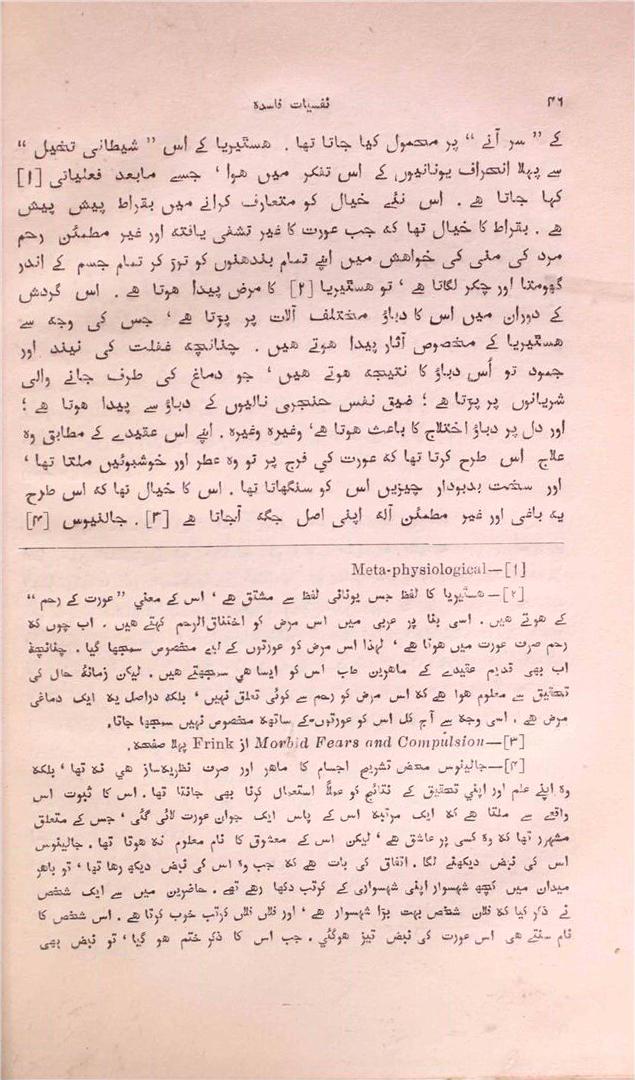 ۴۶
نفسیات فاسدہ
کے ” سر آنے “ پر محمول کیا جاتا تھا ۔ ھسٹیریا کے اس ” شیطانی تخیل “
سے پہلا انحراف یونانیوں کے اس تفکر میں ھوا ‘ جسے مابعد فعلیاتی [۱]
کہا جاتا ھے ۔ اس نئے خیال کو متعارف کرانے میں بقراط پیش پیش
ھے ۔ بقراط کا خیال تھا کہ جب عورت کا غیر تشفی یافتہ اور غیر مطمئن رحم
مرد کی منی کی خواھش میں اپنے تمام بندھنوں کو توڑ کر تمام جسم کے اندر
گھومتا اور چکر لگاتا ھے ‘ تو ھسٹیریا [۲] کا مرض پیدا ھوتا ھے ۔ اس گردش
کے دوران میں اس کا دباؤ مختلف آلات پر پڑتا ھے ‘ جس کی وجہ سے
ھسٹیریا کے مخصوص آثار پیدا ھوتے ھیں ۔ چنانچہ غفلت کی نیند اور
جمود تو اُس دباؤ کا نتیجہ ھوتے ھیں ‘ جو دماغ کی طرف جانے والی
شریانوں پر پڑتا ھے ؛ ضیق نفس حنجری نالیوں کے دباؤ سے پیدا ھوتا ھے ؛
اور دل پر دباؤ اختلاج کا باعث ھوتا ھے‘ وغیرہ وغیرہ ۔ اپنے اس عقیدے کے مطابق وہ
علاج اس طرح کرتا تھا کہ عورت کی فرج پر تو وہ عطر اور خوشبوئیں ملتا تھا ‘
اور سخت بدبودار چیزیں اس کو سنگھاتا تھا ۔ اس کا خیال تھا کہ اس طرح
یہ باغی اور غیر مطمئن آلہ اپنی اصل جگہ آجاتا ھے [۳] ۔ جالنیوس [۴]
[۱]—Meta-physiological
[۲]—ھسٹیریا کا لفظ جس یونانی لفظ سے مشتق ھے ‘ اس کے معنی ” عورت کے رحم “
کے ھوتے ھیں ۔ اسی بنا پر عربی میں اس مرض کو اختناق الرحم کہتے ھیں ۔ اب چوں کہ
رحم صرف عورت میں ھوتا ھے ‘ لہذا اس مرض کو عورتوں کے لیے مخصوص سمجھا گیا ۔ چنانچہ
اب بھی قدیم عقیدے کے ماھرین طب اس کو ایسا ھی سمجھتے ھیں ۔ لیکن زمانۂ حال کی
تحقیق سے معلوم ھوا ھے کہ اس مرض کو رحم سے کوئی تعلق نہیں ‘ بلکہ دراصل یہ ایک دماغی
مرض ھے ۔ اسی وجہ سے آج کل اس کو عورتوں کے ساتھ مخصوص نہیں سمجھا جاتا۔
[۳]—Morbid Fears and Compulsion از Frink پہلا صفحہ۔
[۴]—جالینوس محض تشریح اجسام کا ماھر اور صرف نظریہ ساز ھی نہ تھا ‘ بلکہ
وہ اپنے علم اور اپنی تحقیق کے نتائج کو عملاً استعمال کرنا بھی جانتا تھا ۔ اس کا ثبوت اس
واقعے سے ملتا ھے کہ ایک مرتبہ اس کے پاس ایک جوان عورت لائی گئی ‘ جس کے متعلق
مشہور تھا کہ وہ کسی پر عاشق ھے ‘ لیکن اس کے معشوق کا نام معلوم نہ ھوتا تھا ۔ جالینوس
اس کی نبض دیکھنے لگا ۔ اتفاق کی بات ھے کہ جب وہ اس کی نبض دیکھ رھا تھا ‘ تو باھر
میدان میں کچھ شہسوار اپنی شہسواری کے کرتب دکھا رھے تھے ۔ حاضرین میں سے ایک شخص
نے ذکر کیا کہ فلاں شخص بہت بڑا شہسوار ھے ‘ اور فلاں فلاں کرتب خوب کرتا ھے ۔ اس شخص کا
نام سنتے ھی اس عورت کی نبض تیز ھوگئی ۔ جب اس کا ذکر ختم ھو گیا ‘ تو نبض بھی